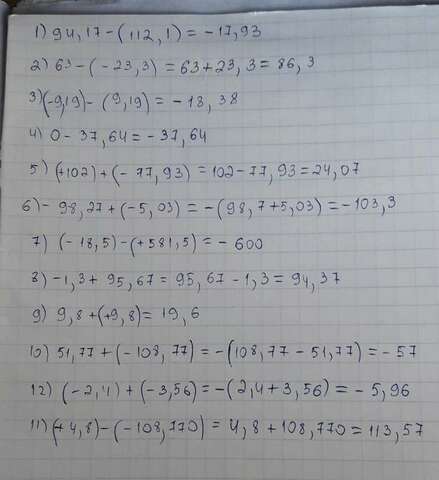 1) 94,17-(112,1)=-17,93
2) 63-(-23,3)=63+23,3=86,3
3)(-9,19)-(9,19)=-18,38
4) 0-37,64=-37,64
5) (+102)+(-77,93)=102-77,93=24,07
6)-98,27+(-5,03)=-(98,7+5,03)=-103,3
7) (-18,5)-(+581,5)=-600
8)-1,3+95,67=95,67-1,3=94,37
9) 9,8+(+9,8)=19,6
10) 51,77+(-108,77)=-(108,77-51,77)=-57
12) (-2,4)+(-3,56)=-(2,4+3,56)=-5,96
11) (+4,8)-(-108,770)=4,8+108,770=113,57